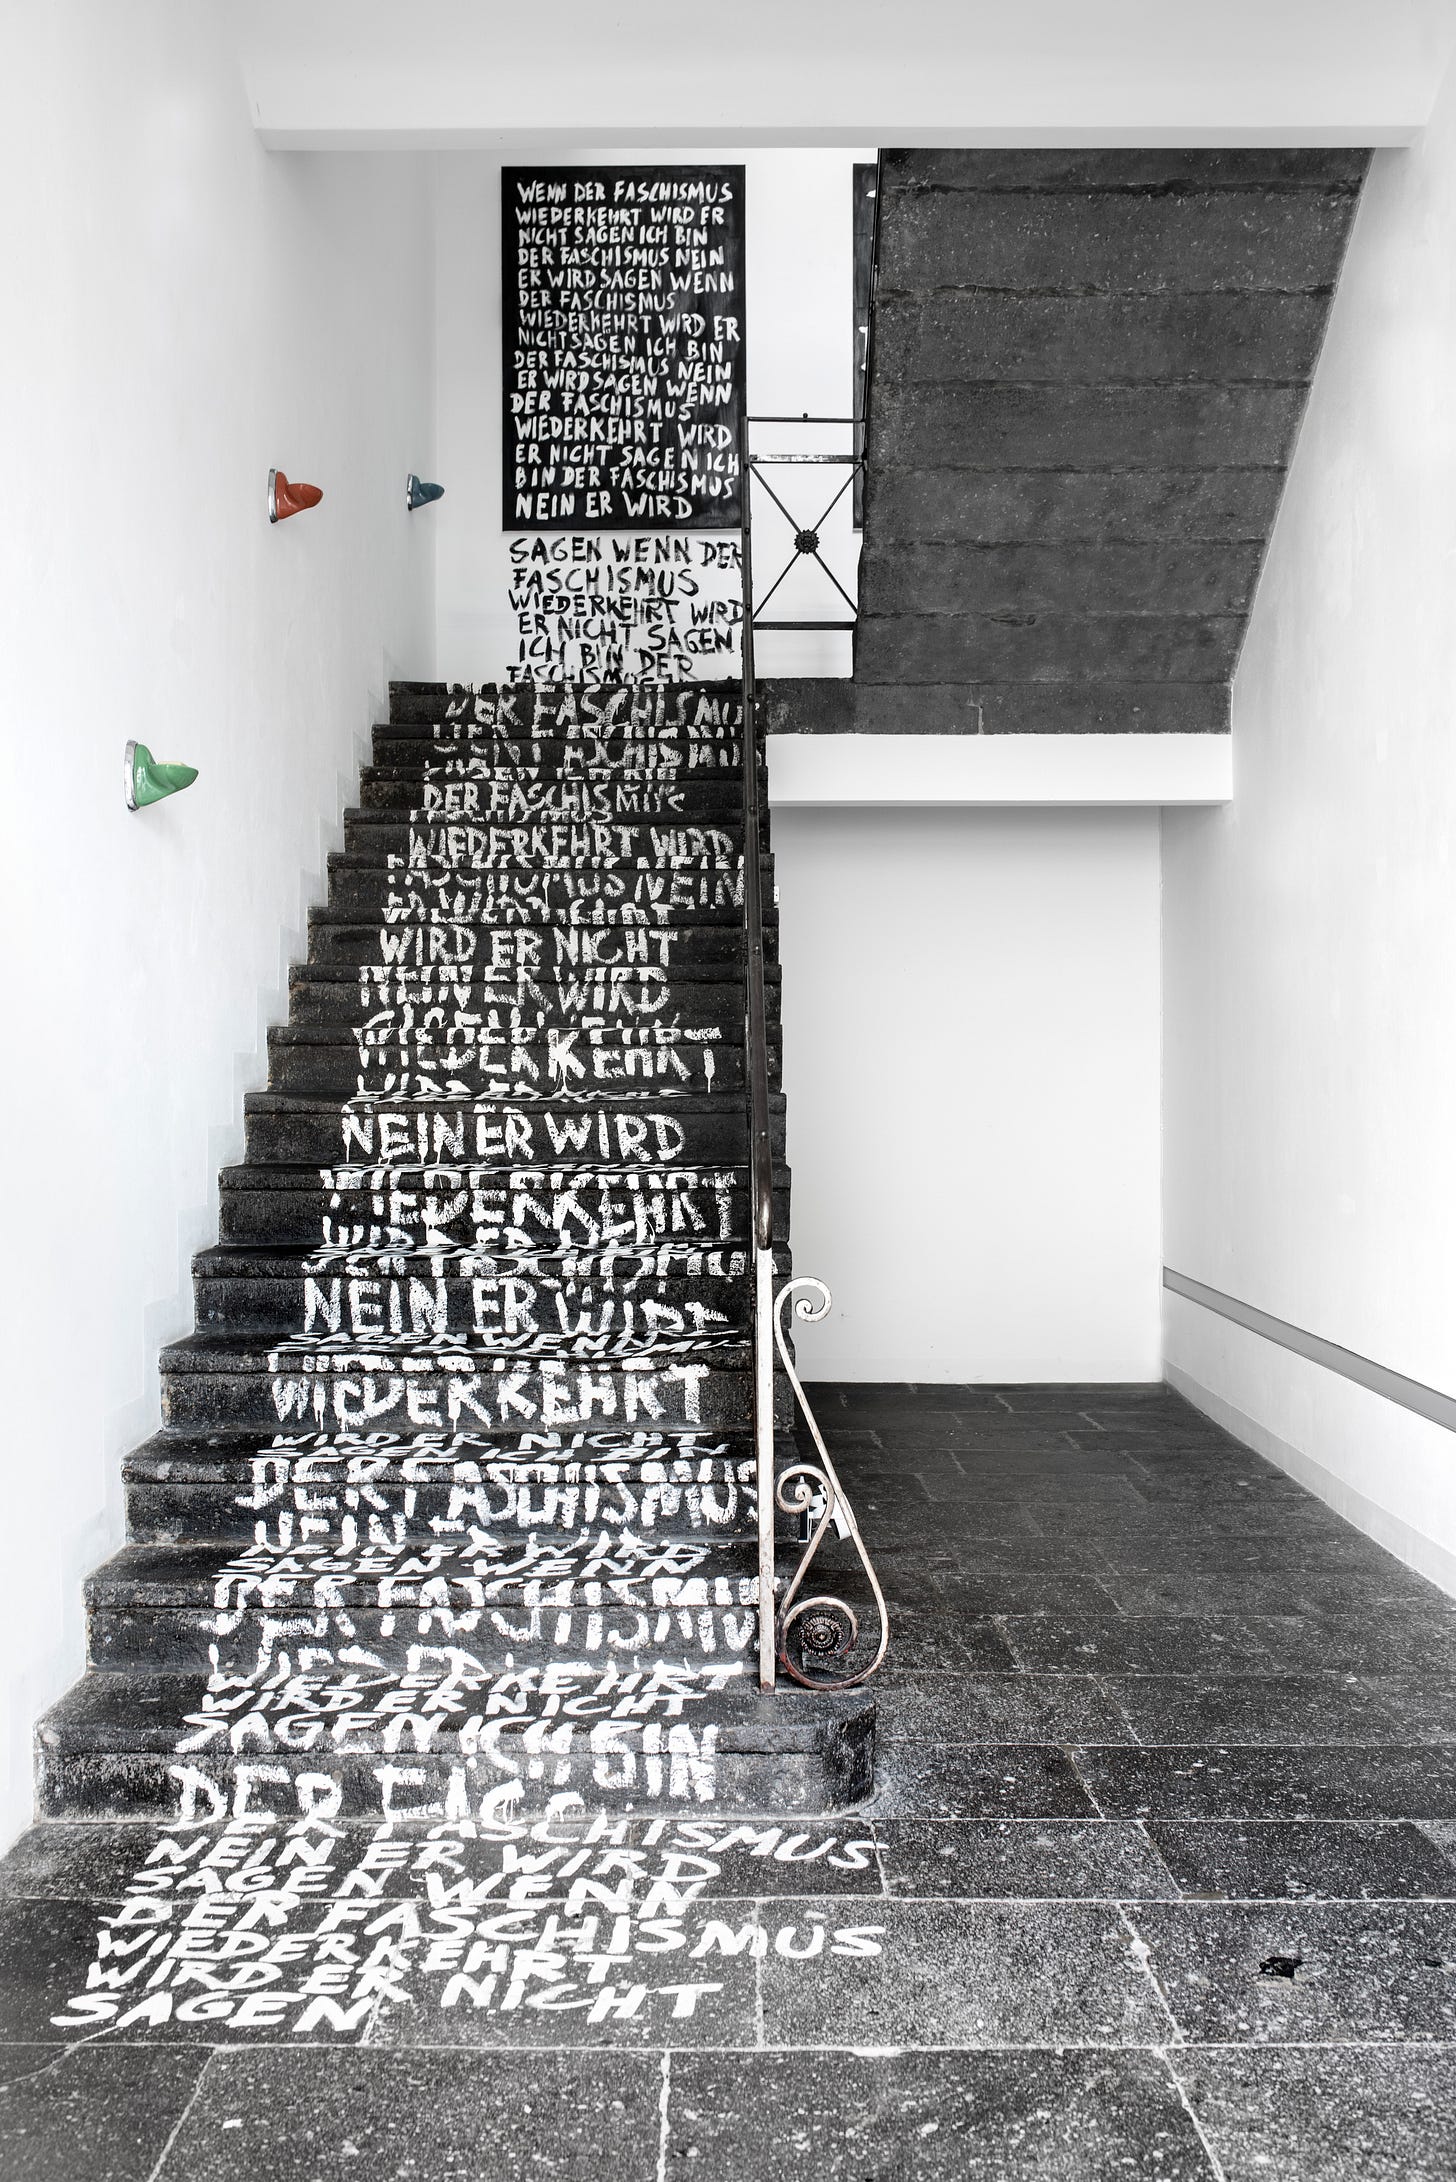 WENN DER FASCHISMUS
WIEDERKEHRT WIRD ER
NICHT SAGEN ICH BIN
DER FASCHISMUS NEIN
ER WIRD SAGEN WENN
DER FASCHISMUS
WIEDERKEHRT WIRD ER
NICHT SAGEN ICH BIN
DER FASCHISMUS NEIN
ER WIRD SAGEN WENN
DER FASCHISMUS
WIEDERKEHRT WIRD
ER NICHT SAGEN ICH
BIN DER FASCHISMUS
NEIN ER WIRD
SAGEN WENN DER
FASCHISMUS
WIEDERKEHRT WIRD
ER NICHT SAGEN
ICH BIN DER
FASCHISMUS
DER FASCHISMUS
DER FASCHISMUS
DER FASCHISMUS
WIEDERKEHRT WIRD
FASCHISMUS NEIN
WIRD ER NICHT
NEIN ER WIRD
WIEDERKEHRT
WIRD ER NICHT
NEIN ER WIRD
WIEDERKEHRT
WIRD ER
DER FASCHISMUS
NEIN ER WIRD
SAGEN WENN
WIEDERKEHRT
WIRD ER NICHT
SAGEN ICH BIN
DER FASCHISMUS
NEIN ER WIRD
SAGEN WENN
DER FASCHISMUS
WIEDERKEHRT
WIRD ER NICHT
SAGEN ICH BIN
DER FASCHISMUS
NEIN ER WIRD
SAGEN WENN
DER FASCHISMUS
WIEDERKEHRT
WIRD ER NICHT
SAGEN